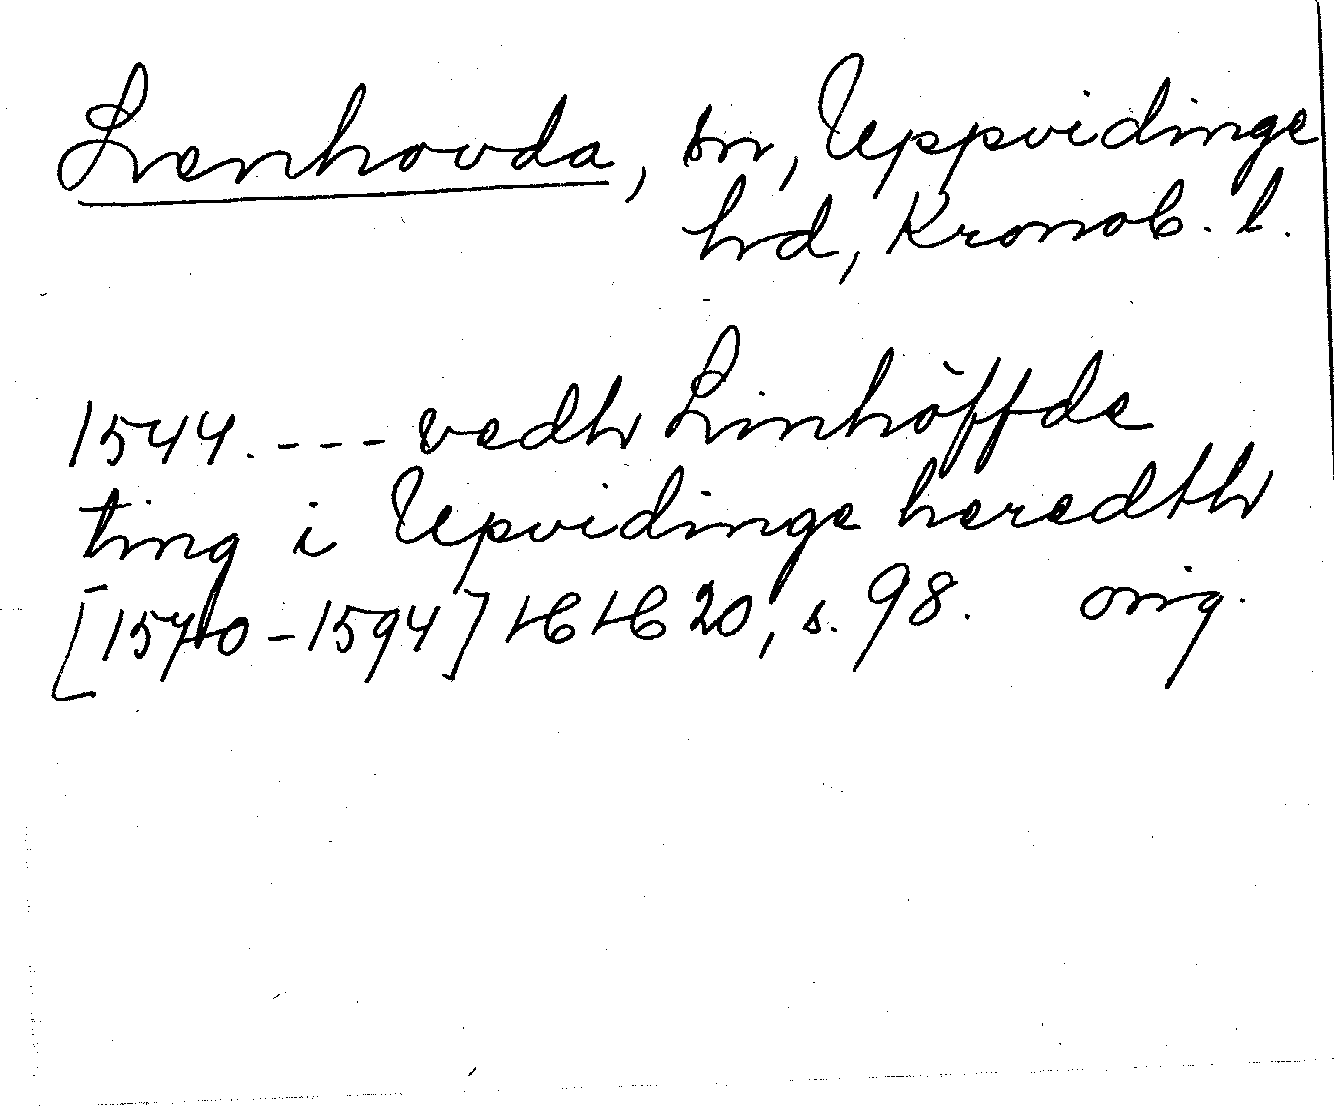 Lenhovda, sn, Uppvidinge
hd, Kronob. l.
1544. --- vedh Linhöffde
ting i Upvidinge heredth
[1570-1594] HH 20, s. 98. orig.